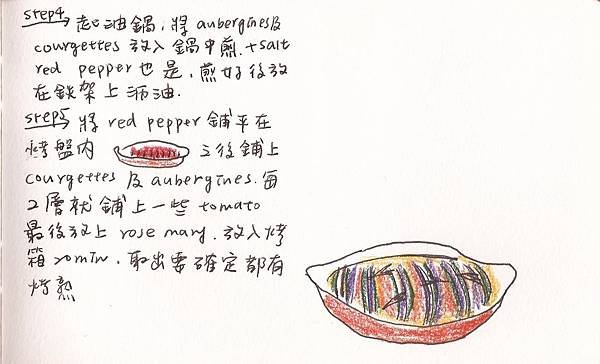 step4 起油鍋，將 aubergines及
courgettes 放入鍋中煎.+salt
red pepper也是，煎好後放
在鉄架上沥油.
step5 將 red pepper 鋪平在
烤盤內 之後鋪上
courgettes 及 aubergines. 每
2層就鋪上一些 tomato
最後放上 rose mary. 放入烤
箱 20min，取出要確定都有
烤熟